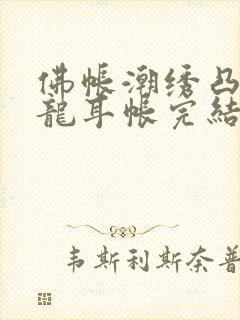 佛帐潮绣凸
龍耳帐完結
韦斯利斯奈普